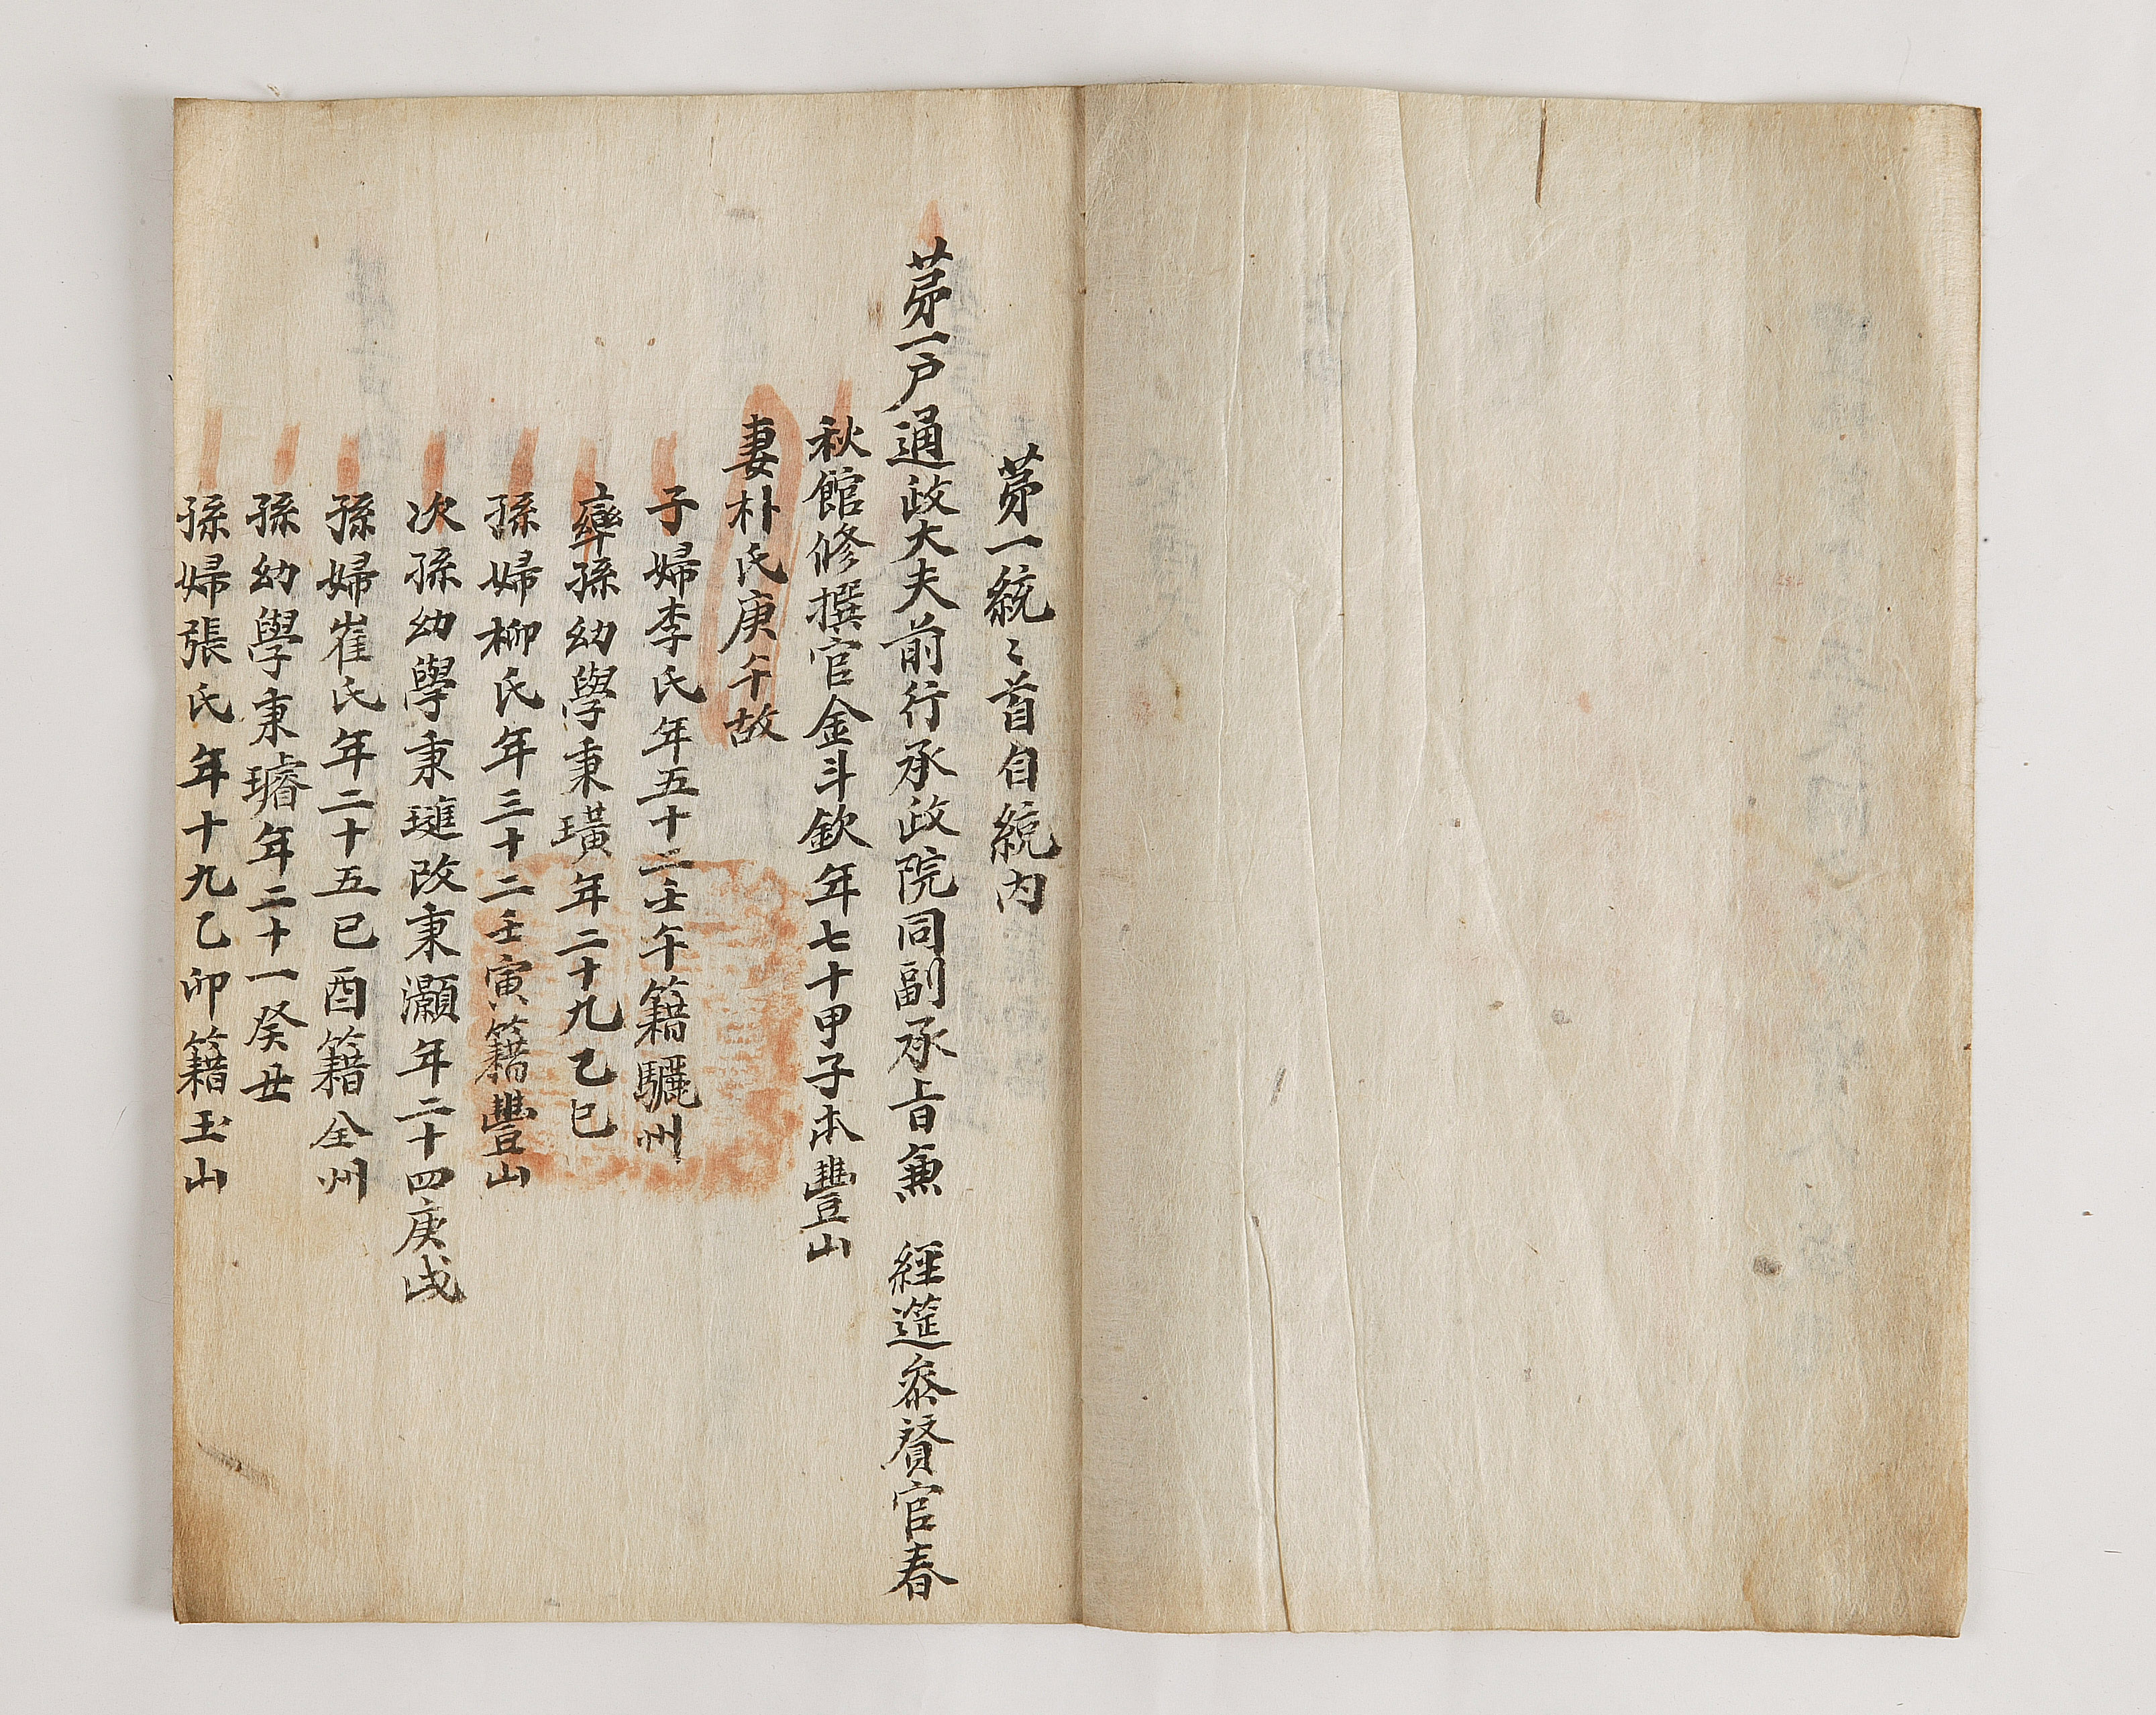 苐一統〻首自統內
苐一戶通政大夫前行承政院同副承旨兼 經筵叅賛官春
秋館修撰官金斗欽年七十甲子本豐山
妻朴氏庚午故
子婦李氏年五十二壬午籍驪州
孫幼學秉璜年二十九乙巳
孫婦柳氏年三十二壬寅籍豐山
次孫幼學秉璡改秉灝年二十四庚戌
孫婦崔氏年二十五己酉籍全州
孫幼學秉璿年二十一癸丑
孫婦張氏年十九乙卯籍玉山